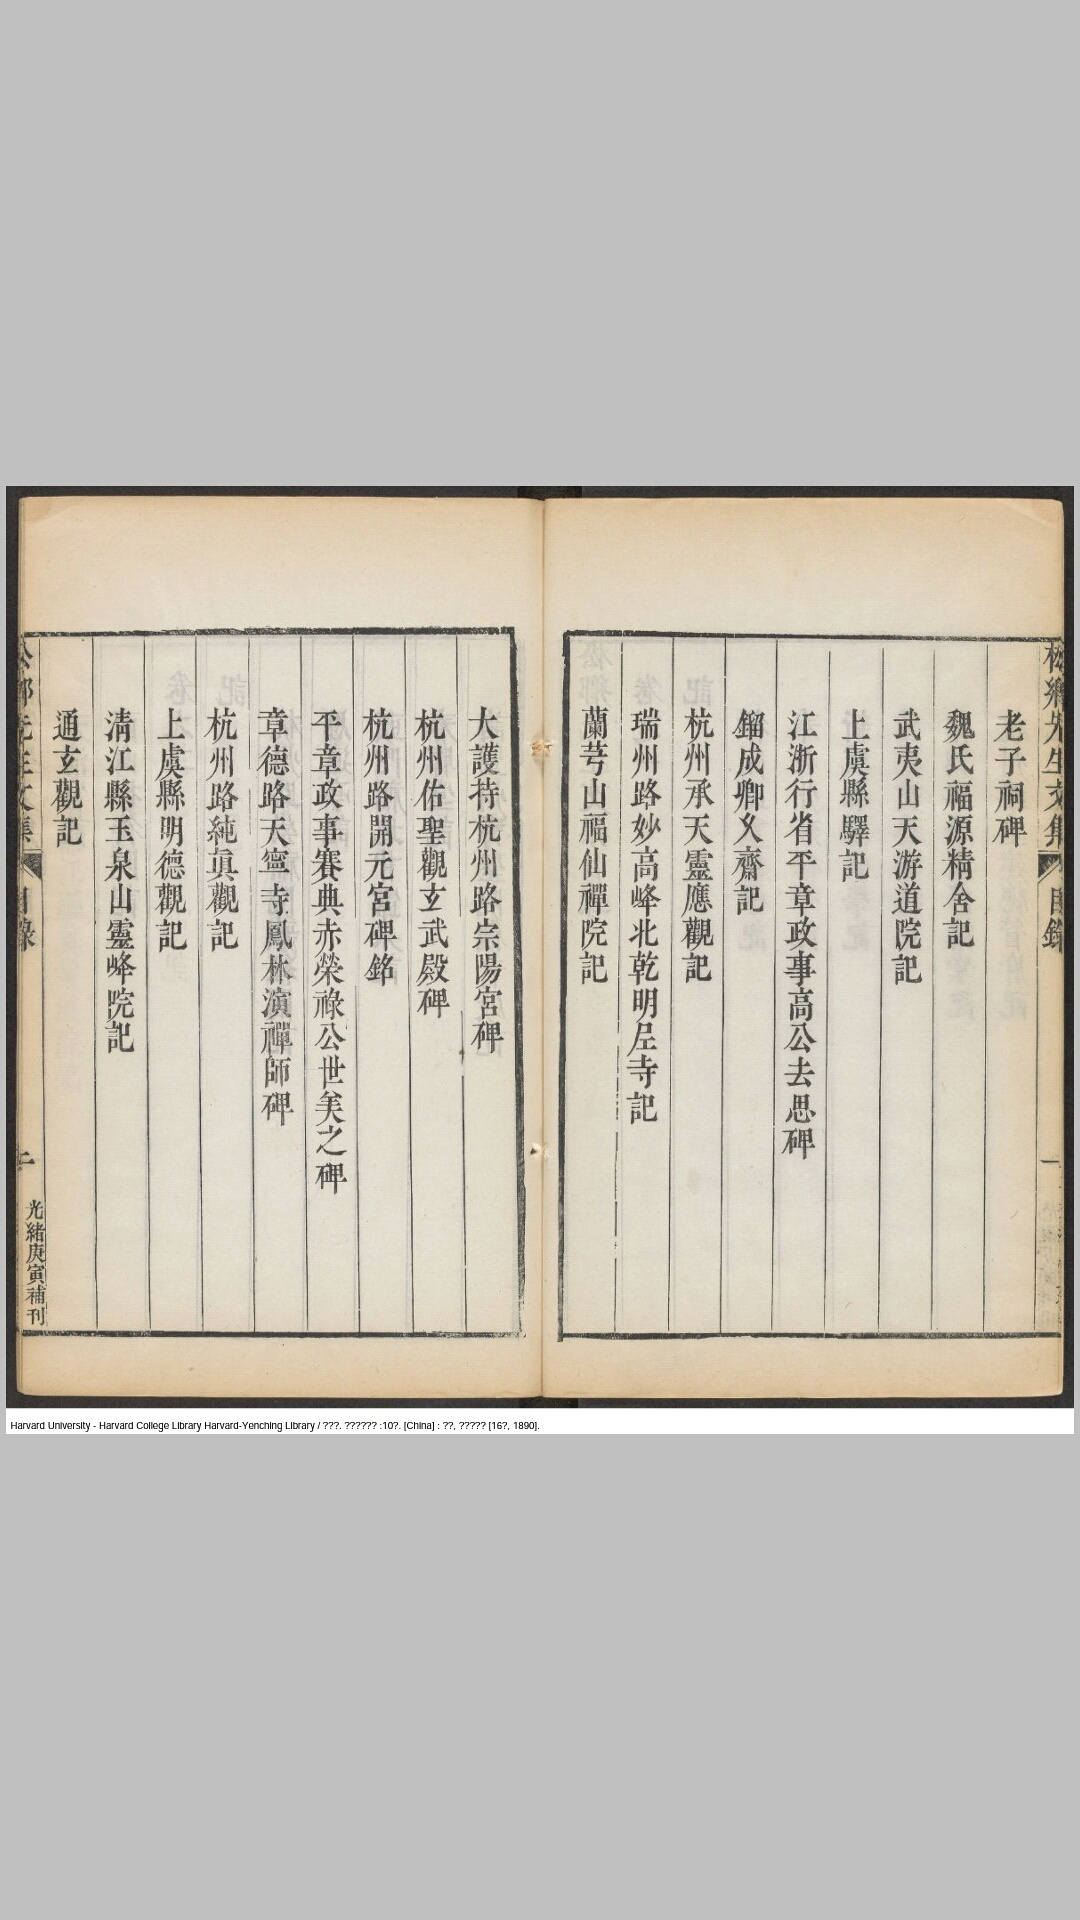 松鄉先生文集 目錄 一
老子祠碑
魏氏福源精舍記
武夷山天游道院記
上虞縣驛記
江浙行省平章政事高公去思碑
鎦成卿乂齋記
杭州承天靈應觀記
瑞州路妙高峰北乾明尼寺記
蘭芎山福仙禪院記
大護持杭州路宗陽宮碑
杭州佑聖觀玄武殿碑
杭州路開元宮碑銘
平章政事賽典赤榮祿公世美之碑
章德路天寧寺鳳林演禪師碑
杭州路純眞觀記
上虞縣明德觀記
清江縣玉泉山靈峰院記
通玄觀記
松鄉先生文集 目錄 二
光緒庚寅補刊
Harvard University - Harvard College Library Harvard-Yenching Library / ???. ?????? :10?. [China] : ??, ????? [16?, 1890].